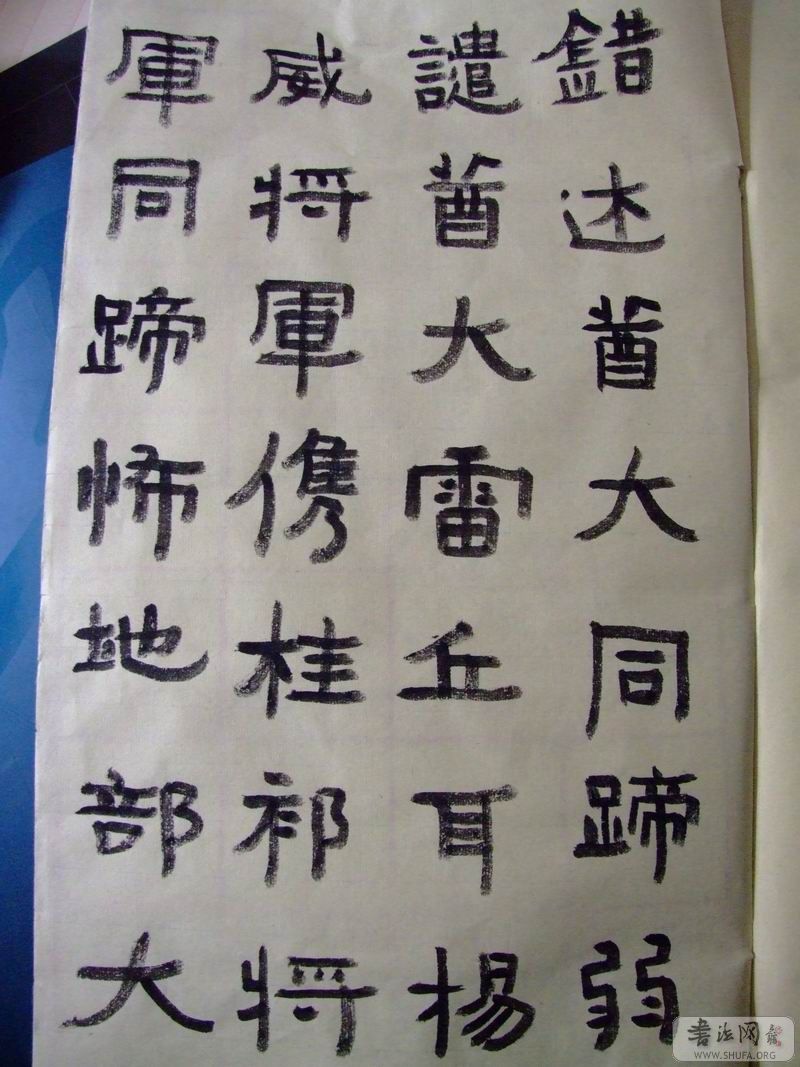 錯述酋大同蹄弱
譴酋大雷丘耳楊
威将軍㑺桂祁将
軍同蹄怖地部大
书法网
WWW.SHUFA.ORG